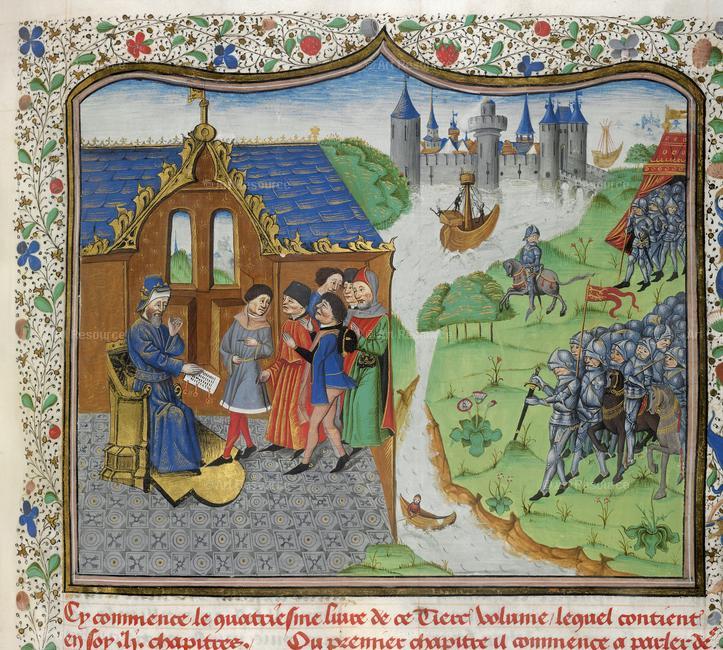 Cy commence le quatriesme livre de ce Tierc volume / lequel contient
en soy .lij. chapitres. / Ou premier chapitre il commence a parler de